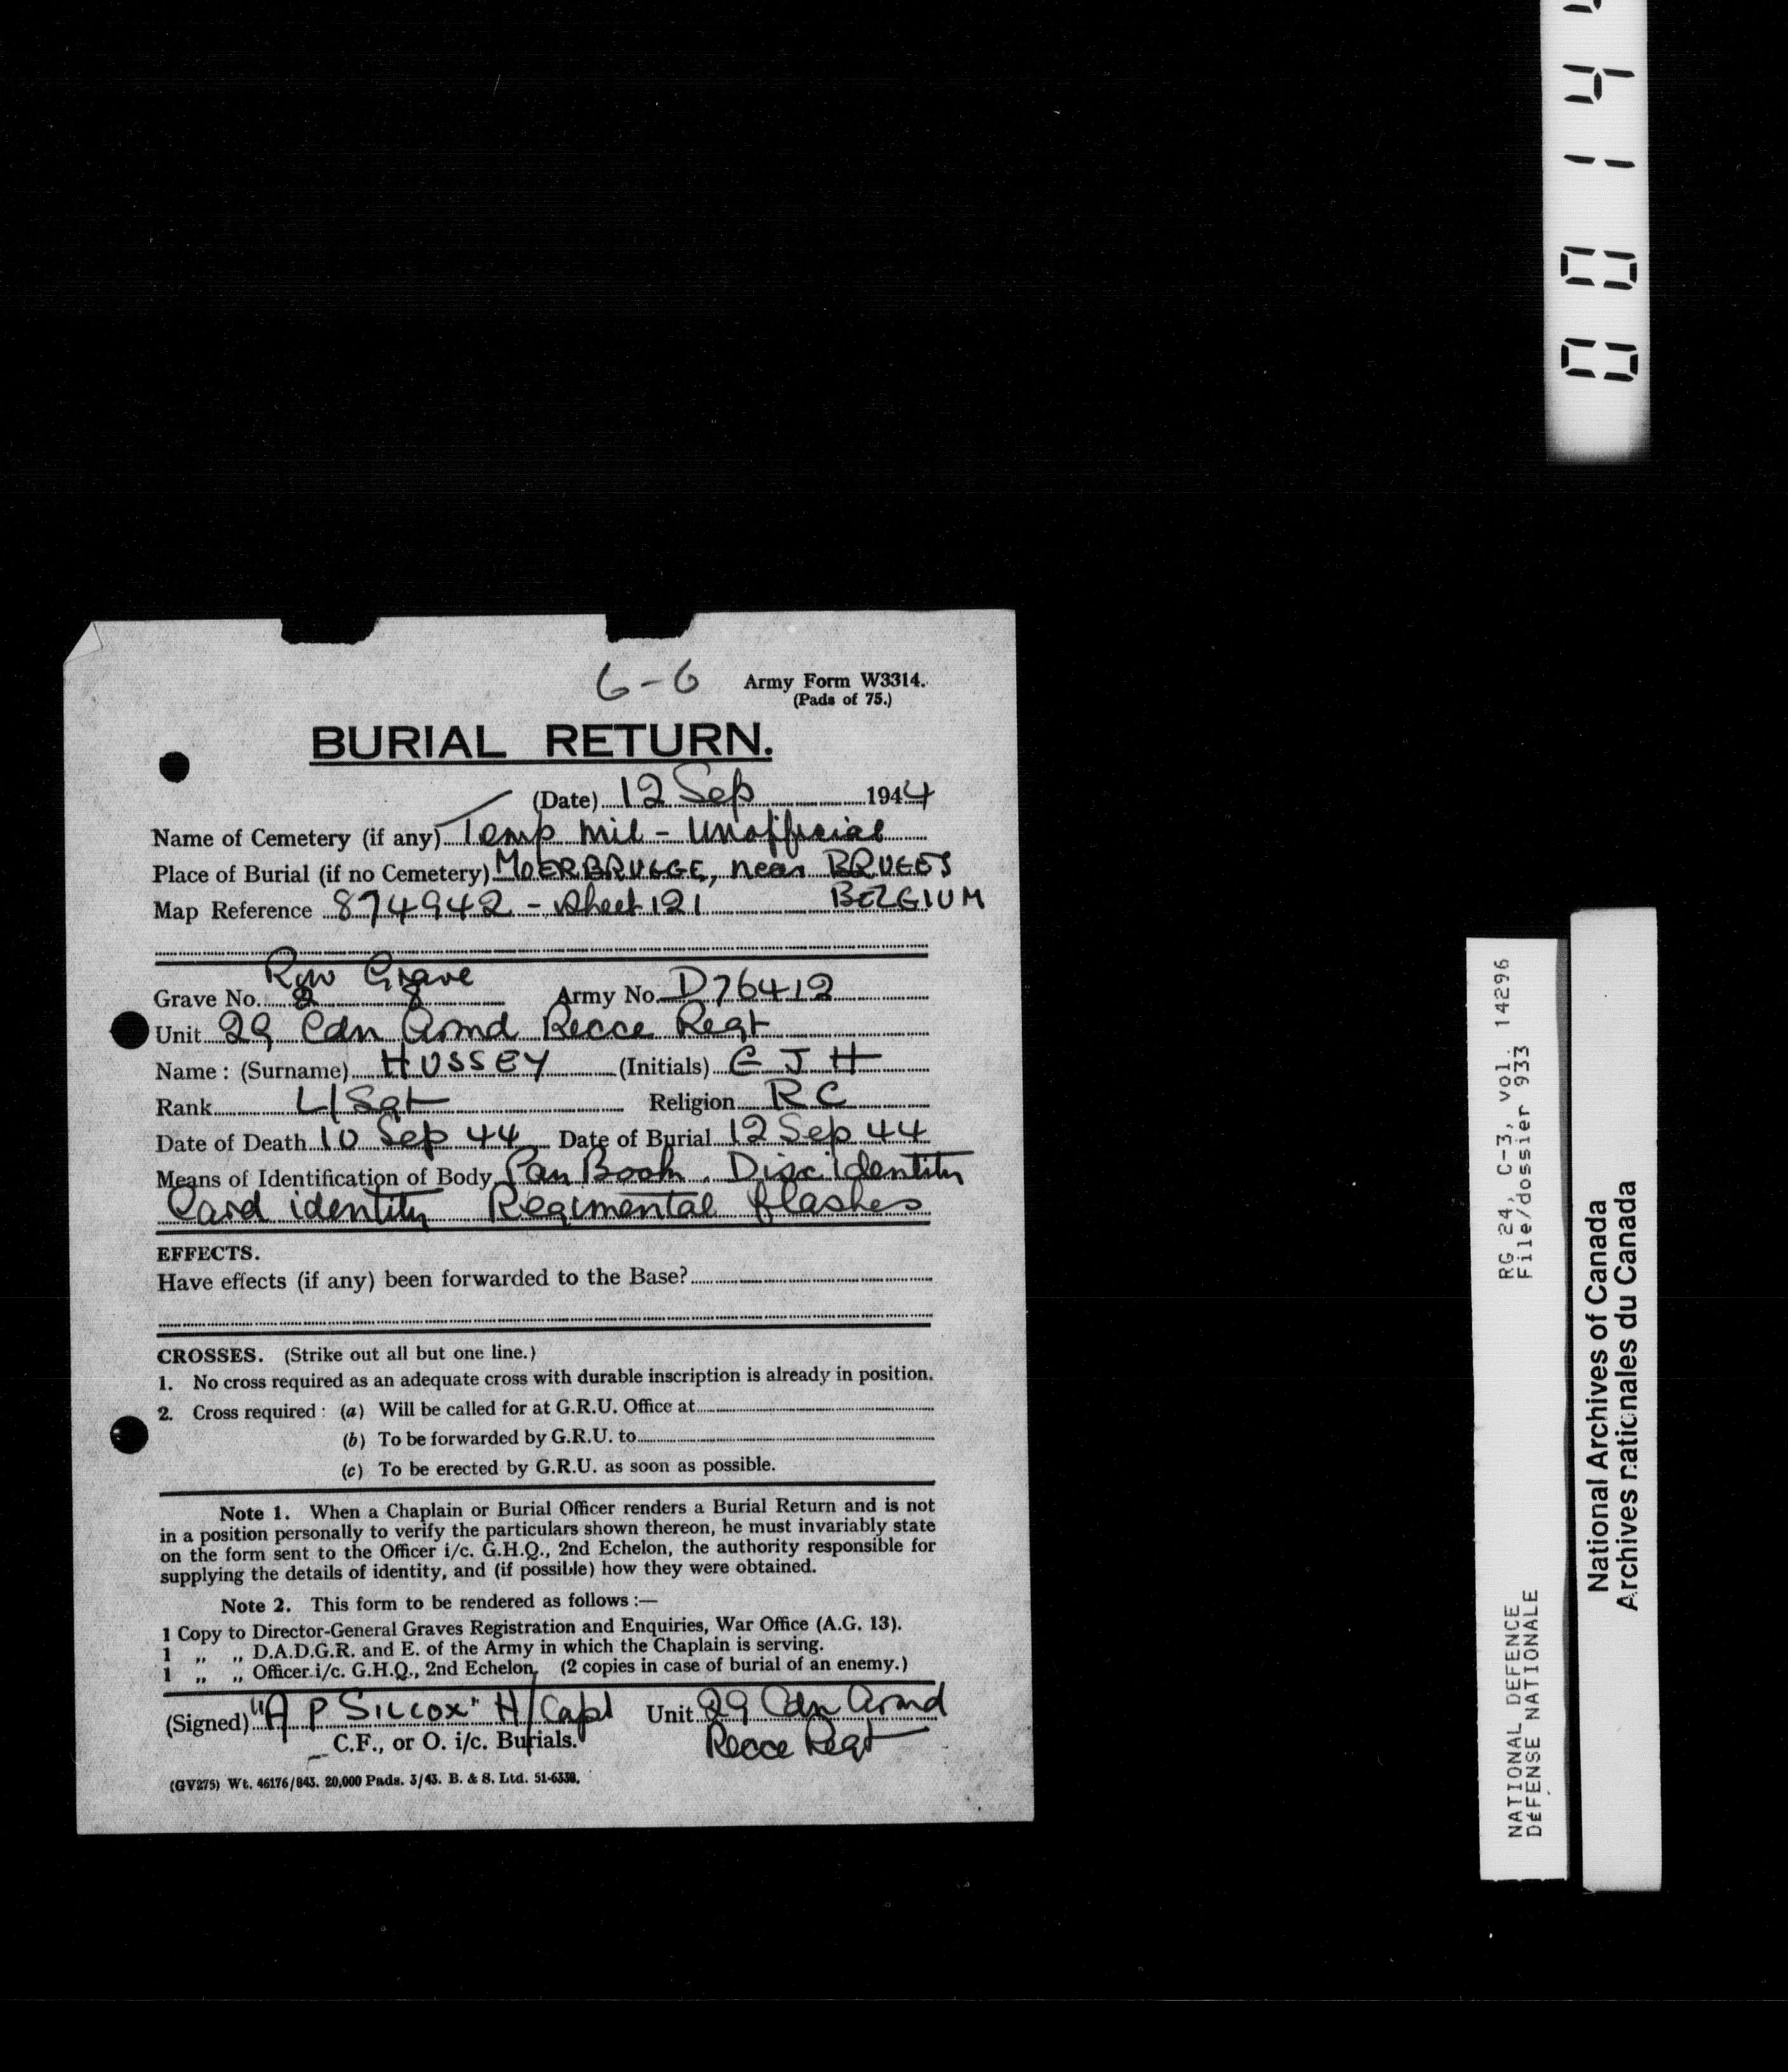 6-6 Army Form W3314.
(Pads of 75.)
BURIAL RETURN.
(Date) 12 Sep 1944
Name of Cemetery (if any) Temp Mil - Unofficial
Place of Burial (if no Cemetery) MOERBRUGGE, near BRUGES
Map Reference 874942 - Sheet 121 BELGIUM
Row Grave
Grave No. 2 8 Army No. D76412
Unit 29 Cdn Armd Recce Regt
Name: (Surname) HUSSEY (Initials) E J H
Rank L/Sgt Religion RC
Date of Death 10 Sep 44 Date of Burial 12 Sep 44
Means of Identification of Body Pay Book. Disc identity
Card identity Regimental flashes
EFFECTS.
Have effects (if any) been forwarded to the Base?
CROSSES. (Strike out all but one line.)
1. No cross required as an adequate cross with durable inscription is already in position.
2. Cross required: (a) Will be called for at G.R.U. Office at
(b) To be forwarded by G.R.U. to
(c) To be erected by G.R.U. as soon as possible.
Note 1. When a Chaplain or Burial Officer renders a Burial Return and is not
in a position personally to verify the particulars shown thereon, he must invariably state
on the form sent to the Officer i/c. G.H.Q., 2nd Echelon, the authority responsible for
supplying the details of identity, and (if possible) how they were obtained.
Note 2. This form to be rendered as follows:—
1 Copy to Director-General Graves Registration and Enquiries, War Office (A.G. 13).
1 „ „ D.A.D.G.R. and E. of the Army in which the Chaplain is serving.
1 „ „ Officer i/c. G.H.Q., 2nd Echelon. (2 copies in case of burial of an enemy.)
(Signed) "A P SILCOX" H/Capt Unit 29 Cdn Armd
C.F., or O. i/c. Burials. Recce Regt
(GV275) Wt. 46176/843. 20,000 Pads. 3/43. B. & S. Ltd. 51-6338.
0014
RG 24, C-3, vol. 14296
File/dossier 933
NATIONAL DEFENCE
DÉFENSE NATIONALE
National Archives of Canada
Archives nationales du Canada